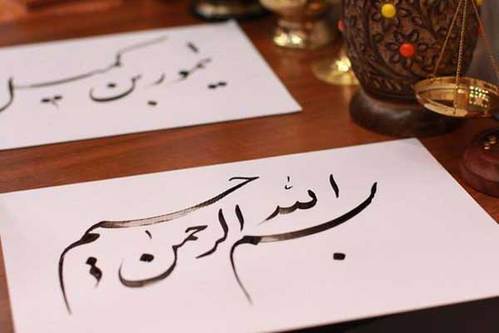 ایمور بن کمیل
بسم الله الرحمن الرحیم